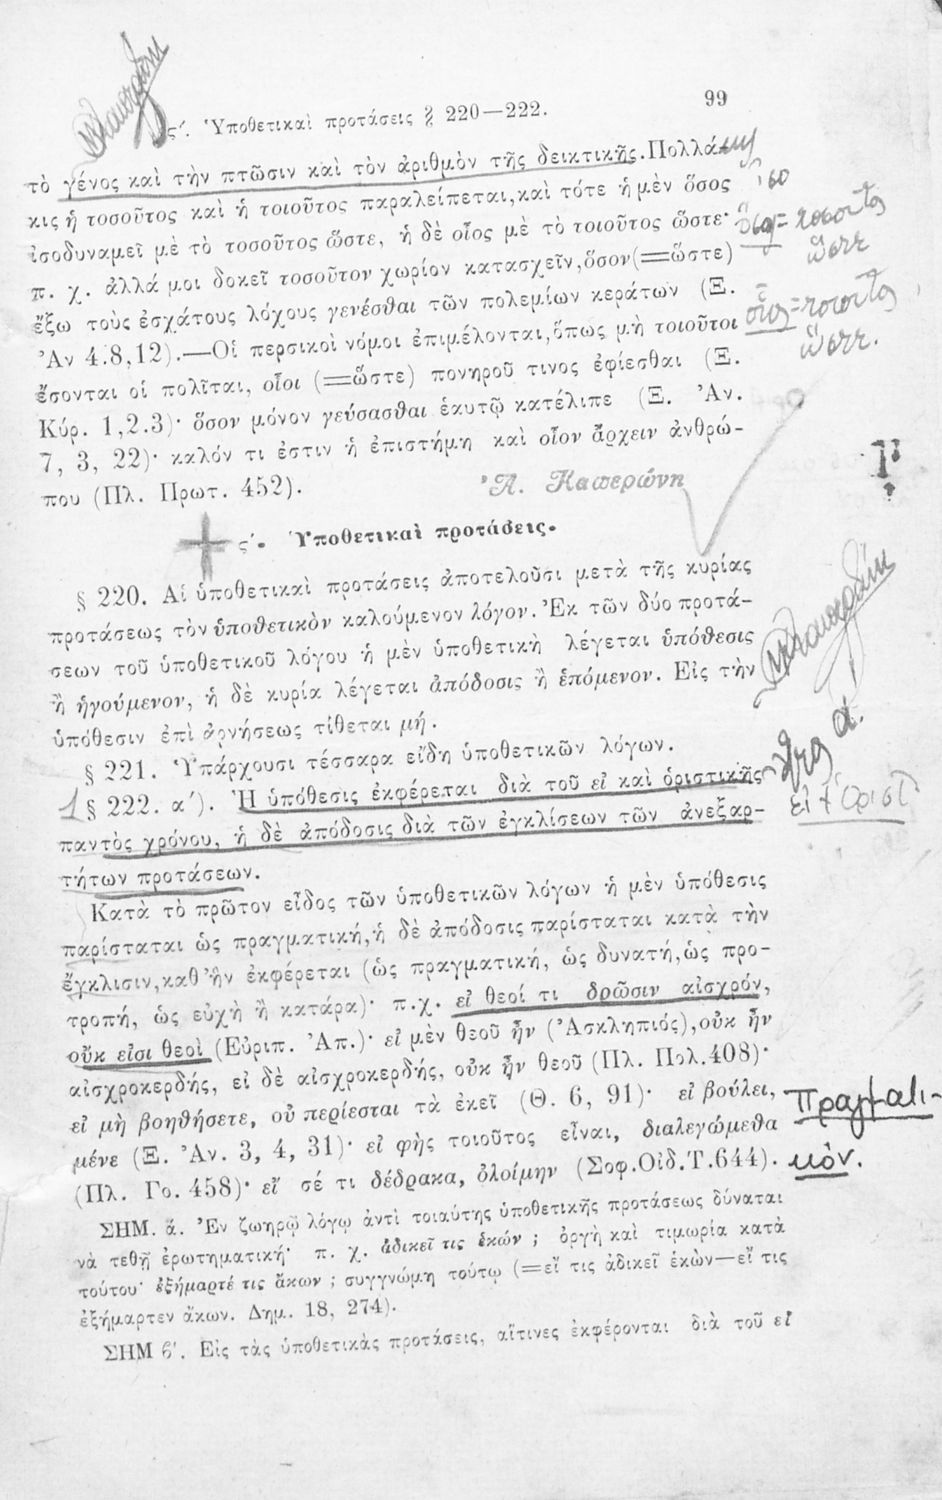 99
ς΄. Ὑποθετικαὶ προτάσεις § 220—222.
τὸ γένος καὶ τὴν πτῶσιν καὶ τὸν ἀριθμὸν τῆς δεικτικῆς. Πολλά-
κις ἡ τοσοῦτος καὶ ἡ τοιοῦτος παραλείπεται, καὶ τότε ἡ μὲν ὅσος
ἰσοδυναμεῖ μὲ τὸ τοσοῦτος ὥστε, ἡ δὲ οἷος μὲ τὸ τοιοῦτος ὥστε·
ὅσος = τοσοῦτος
ὥστε
π. χ. ἀλλά μοι δοκεῖ τοσοῦτον χωρίον κατασχεῖν, ὅσον (=ὥστε)
ἔξω τοὺς ἐσχάτους λόχους γενέσθαι τῶν πολεμίων κεράτων (Ξ.
οἷος = τοιοῦτος
ὥστε.
Ἀν 4.8,12).—Οἱ περσικοὶ νόμοι ἐπιμέλονται, ὅπως μὴ τοιοῦτοι
ἔσονται οἱ πολῖται, οἷοι (=ὥστε) πονηροῦ τινος ἐφίεσθαι (Ξ.
Κύρ. 1,2.3)· ὅσον μόνον γεύσασθαι ἑαυτῷ κατέλιπε (Ξ. Ἀν.
7, 3, 22)· καλόν τι ἐστιν ἡ ἐπιστήμη καὶ οἷον ἄρχειν ἀνθρώ-
που (Πλ. Πρωτ. 452).
Ἀ. Καπερώνη
ς΄. Ὑποθετικαὶ προτάσεις.
§ 220. Αἱ ὑποθετικαὶ προτάσεις ἀποτελοῦσι μετὰ τῆς κυρίας
προτάσεως τὸν ὑποθετικὸν καλούμενον λόγον. Ἐκ τῶν δύο προτά-
σεων τοῦ ὑποθετικοῦ λόγου ἡ μὲν ὑποθετικὴ λέγεται ὑπόθεσις
ἢ ἡγούμενον, ἡ δὲ κυρία λέγεται ἀπόδοσις ἢ ἑπόμενον. Εἰς τὴν
ὑπόθεσιν ἐπὶ ἀρνήσεως τίθεται μή.
§ 221. Ὑπάρχουσι τέσσαρα εἴδη ὑποθετικῶν λόγων.
1 § 222. α΄). Ἡ ὑπόθεσις ἐκφέρεται διὰ τοῦ εἰ καὶ ὁριστικῆς
εἰ + ὁριστ
παντὸς χρόνου, ἡ δὲ ἀπόδοσις διὰ τῶν ἐγκλίσεων τῶν ἀνεξαρ-
τήτων προτάσεων.
Κατὰ τὸ πρῶτον εἶδος τῶν ὑποθετικῶν λόγων ἡ μὲν ὑπόθεσις
παρίσταται ὡς πραγματική, ἡ δὲ ἀπόδοσις παρίσταται κατὰ τὴν
ἔγκλισιν, καθ᾽ ἣν ἐκφέρεται (ὡς πραγματική, ὡς δυνατή, ὡς προ-
τροπή, ὡς εὐχὴ ἢ κατάρα)· π.χ. εἰ θεοί τι δρῶσιν αἰσχρόν,
οὔκ εἰσι θεοὶ (Εὐριπ. Ἀπ.)· εἰ μὲν θεοῦ ἦν (Ἀσκληπιός), οὐκ ἦν
αἰσχροκερδής, εἰ δὲ αἰσχροκερδής, οὐκ ἦν θεοῦ (Πλ. Πολ. 408)·
εἰ μὴ βοηθήσετε, οὐ περίεσται τὰ ἐκεῖ (Θ. 6, 91)· εἰ βούλει,
Πραγματι-
μένε (Ξ. Ἀν. 3, 4, 31)· εἰ φῂς τοιοῦτος εἶναι, διαλεγώμεθα
(Πλ. Γο. 458)· εἴ σέ τι δέδρακα, ὀλοίμην (Σοφ. Οἰδ. Τ. 644).
κόν.
ΣΗΜ. ά. Ἐν ζωηρῷ λόγῳ ἀντὶ τοιαύτης ὑποθετικῆς προτάσεως δύναται
νὰ τεθῇ ἐρωτηματική· π. χ. ἀδικεῖ τις ἑκών ; ὀργὴ καὶ τιμωρία κατὰ
τούτου· ἐξήμαρτέ τις ἄκων ; συγγνώμη τούτῳ (=εἴ τις ἀδικεῖ ἑκὼν—εἴ τις
ἐξήμαρτεν ἄκων. Δημ. 18, 274).
ΣΗΜ β΄. Εἰς τὰς ὑποθετικὰς προτάσεις, αἵτινες ἐκφέρονται διὰ τοῦ εἰ